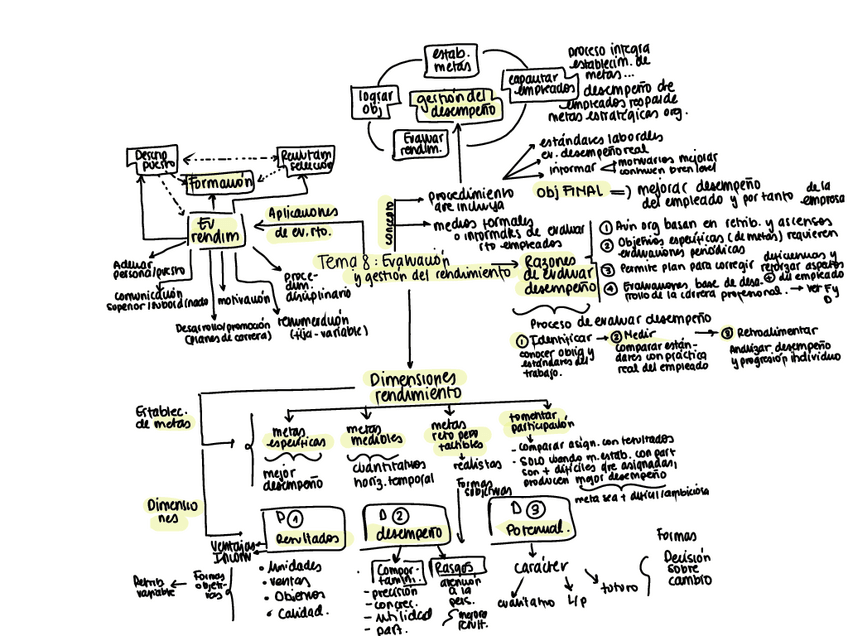 estab.
metas
capacitar
empleados
lograr
obj
gestión del
desempeño
Evaluar
rendim.
proceso integra
establecim. de
metas...
desempeño de
empleados respalde
metas estratégicas org.
Diseño
puesto
Reclutam
selección
Formación
Ev
rendim
Aplicaciones
de ev. rto.
concepto
procedimiento
que incluya
estándares laborales
ev. desempeño real
informar
motivarlos mejorar
continuen buen level
Obj FINAL => mejorar desempeño
del empleado y por tanto de la
empresa
medios formales
o informales de evaluar
rto empleados
Tema 8: Evaluación
y gestión del rendimiento
Razones
de evaluar
desempeño
① Aún org basan en retrib. y ascensos
② Objetivos específicos (de metas) requieren
evaluaciones periódicas
③ Permite plan para corregir deficiencias y
reforzar aspectos
⊕ del empleado
④ Evaluaciones base de desa-
rrollo de la carrera profesional. → ver F y
D
Adecuar
persona/puesto
comunicación
superior/subordinado
motivación
Desarrollo/promoción
(planes de carrera)
remuneración
(fija-variable)
proce-
dim.
disciplinario
Proceso de evaluar desempeño
① Identificar
conocer oblig y
estándares del
trabajo.
② Medir
comparar están-
dares con práctica
real del empleado
③ Retroalimentar
Analizar desempeño
y progresión individuo
Dimensiones
rendimiento
Establec.
de metas
metas
específicas
mejor
desempeño
metas
medibles
cuantitativos
horiz. temporal
metas
reto pero
factibles
realistas
fomentar
participación
- comparar asign. con resultados
- SOLO cuando m. estab. con part
son + difíciles que asignadas,
producen mejor desempeño
meta sea + difícil/ambiciosa
Formas
subjetivas
Dimensio
nes
D ①
Resultados
Ventajas
Inconv
Formas
objeti-
vas
Retrib
variable
• Unidades
• ventas
• Objetivos
• Calidad.
D ②
desempeño
Compor-
tamin.
- precisión
- concrec.
- utilidad
- part.
Rasgos
atención
a la
pers.
mejora
result.
D ③
Potencial.
carácter
cualitativo
L/p
futuro
Formas
Decisión
sobre
cambio